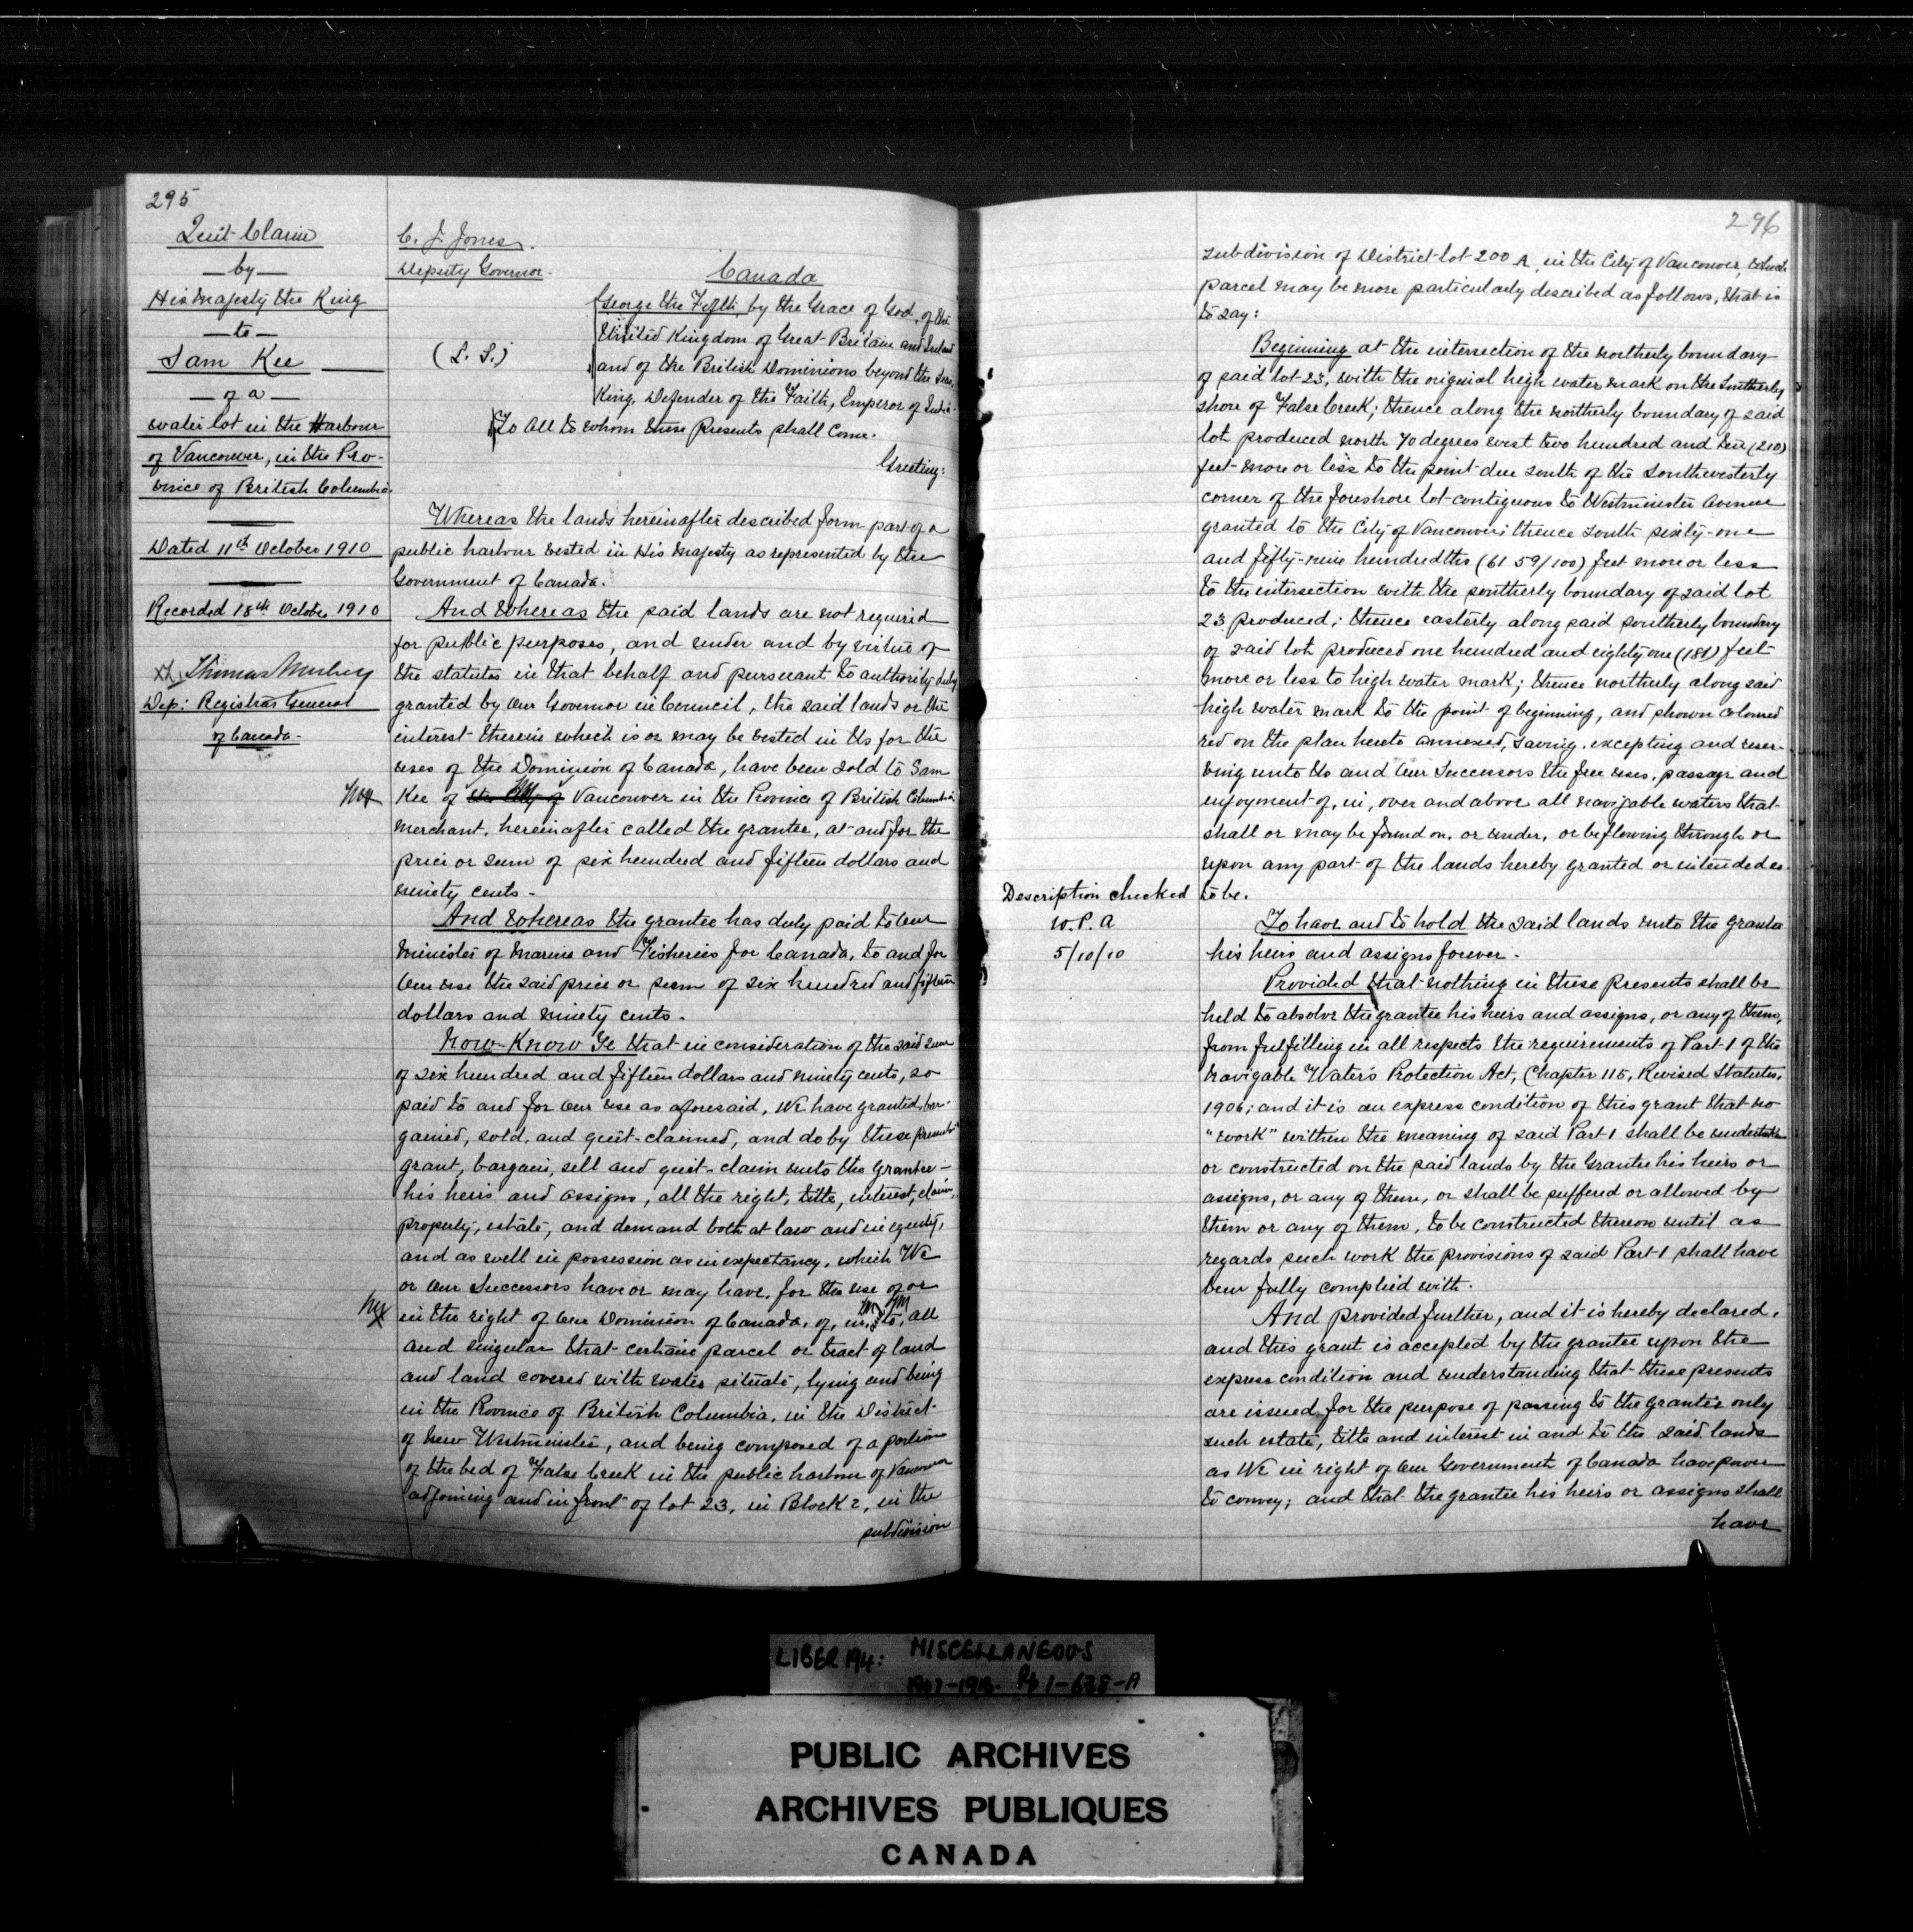 295
Quit Claim
— by —
His Majesty the King
— to —
Sam Kee
— of a —
water lot in the Harbour
of Vancouver, in the Pro-
vince of British Columbia.
Dated 11th October 1910
Recorded 18th October 1910
Thomas Mulvey
Dep: Registrar General
of Canada.
C. J. Jones.
Deputy Governor.
Canada
(L. S.)
George the Fifth, by the Grace of God, of the
United Kingdom of Great Britain and Ireland
and of the British Dominions beyond the Seas,
King, Defender of the Faith, Emperor of India.
To All to whom these Presents shall Come.
Greeting:
Whereas the lands hereinafter described form part of a
public harbour vested in His Majesty as represented by the
Government of Canada.
And Whereas the said lands are not required
for public purposes, and under and by virtue of
the statutes in that behalf and pursuant to authority duly
granted by Our Governor in Council, the said lands or the
interest therein which is or may be vested in Us for the
uses of the Dominion of Canada, have been sold to Sam
Kee of the City of Vancouver in the Province of British Columbia
Merchant, hereinafter called the grantee, at and for the
price or sum of six hundred and fifteen dollars and
ninety cents -
And whereas the grantee has duly paid to Our
Minister of Marine and Fisheries for Canada, to and for
Our use the said price or sum of six hundred and fifteen
dollars and ninety cents -
Now Know Ye that in consideration of the said sum
of six hundred and fifteen dollars and ninety cents, so
paid to and for Our use as aforesaid, We have granted, bar-
gained, sold, and quit-claimed, and do by these presents
grant, bargain, sell and quit-claim unto the Grantee -
his heirs and assigns, all the right, title, interest, claim,
property, estate, and demand both at law and in equity,
and as well in possession as in expectancy, which We
or Our Successors have or may have, for the use of or
in the right of Our Dominion of Canada, of, in, to, all
and singular that certain parcel or tract of land
and land covered with water situate, lying and being
in the Province of British Columbia, in the District
of New Westminster, and being composed of a portion
of the bed of False Creek in the public harbour of Vancouver
adjoining and in front of lot 23, in Block 2, in the
subdivision
296
subdivision of District lot 200 A, in the City of Vancouver, which
parcel may be more particularly described as follows, that is
to say:
Beginning at the intersection of the northerly boundary
of said lot 23, with the original high water mark on the Southerly
shore of False Creek; thence along the northerly boundary of said
lot produced north 70 degrees west two hundred and ten (210)
feet more or less to the point due south of the southwesterly
corner of the foreshore lot contiguous to Westminster Avenue
granted to the City of Vancouver; thence south sixty-one
and fifty-nine hundredths (61 59/100) feet more or less
to the intersection with the southerly boundary of said lot
23 produced; thence easterly along said southerly boundary
of said lot produced one hundred and eighty one (181) feet
more or less to high water mark; thence northerly along said
high water mark to the point of beginning, and shown coloured
red on the plan hereto annexed, saving, excepting and reser-
ving unto Us and Our Successors the free uses, passage and
enjoyment of, in, over and above all navigable waters that
shall or may be found on, or under, or be flowing through or
upon any part of the lands hereby granted or intended so
to be.
Description checked
W. P. A
5/10/10
To have and to hold the said lands unto the Grantee
his heirs and assigns forever.
Provided that nothing in these presents shall be
held to absolve the grantee his heirs and assigns, or any of them,
from fulfilling in all respects the requirements of Part 1 of the
Navigable Waters Protection Act, (Chapter 115, Revised Statutes,
1906; and it is an express condition of this grant that no
"work" within the meaning of said Part 1 shall be undertaken
or constructed on the said lands by the Grantee his heirs or
assigns, or any of them, or shall be suffered or allowed by
them or any of them, to be constructed thereon until as
regards such work the provisions of said Part 1 shall have
been fully complied with.
And provided further, and it is hereby declared,
and this grant is accepted by the grantee upon the
express condition and understanding that these presents
are issued for the purpose of passing to the grantee only
such estate, title and interest in and to the said lands
as We in right of Our Government of Canada have power
to convey; and that the grantee his heirs or assigns shall
have
LIBER 194: MISCELLANEOUS
1907-1913. Pp 1-638-A
PUBLIC ARCHIVES
ARCHIVES PUBLIQUES
CANADA